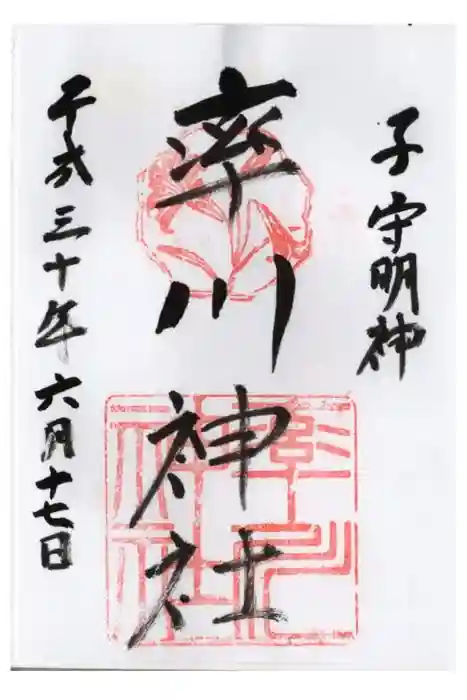 子守明神
率川神社
平成三十年六月十七日